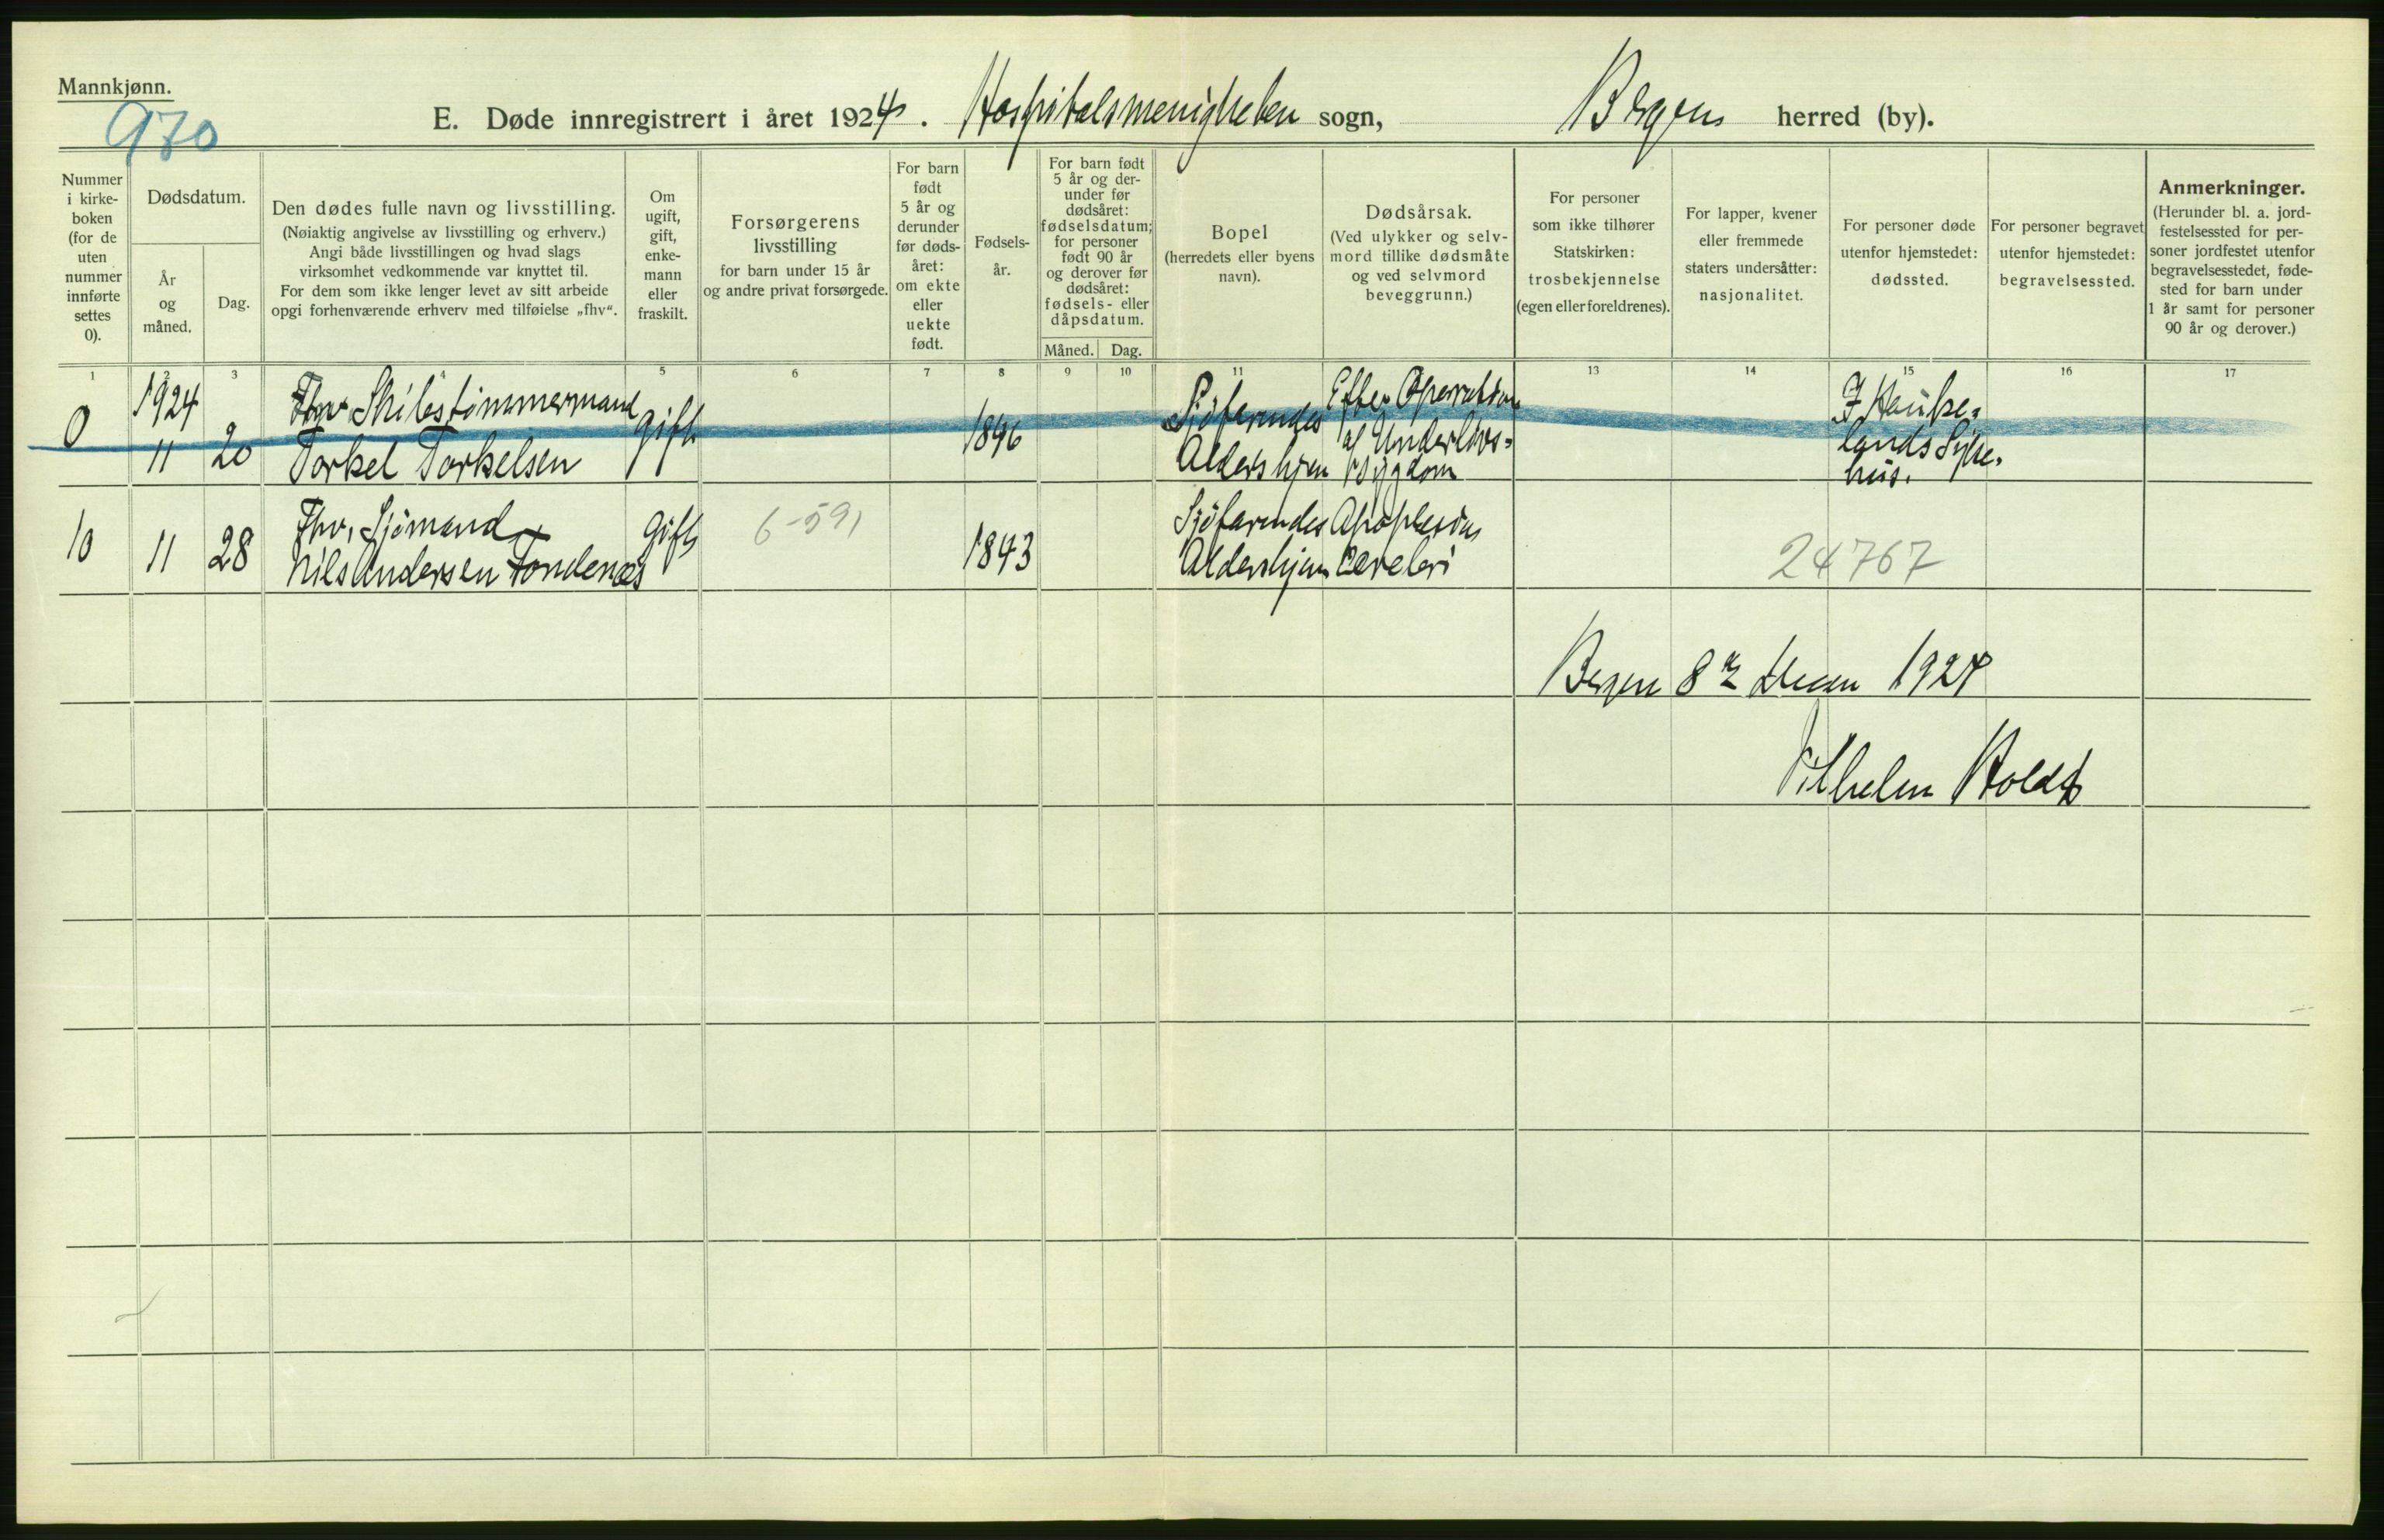 Mannkjønn.
970
E. Døde innregistrert i året 1924. Hospitalsmenigheten sogn, Bergen herred (by).
Nummer i kirke-boken (for de uten nummer innførte settes 0).
Dødsdatum.
År og måned.
Dag.
Den dødes fulle navn og livsstilling.
(Nøiaktig angivelse av livsstilling og erhverv.)
Angi både livsstillingen og hvad slags
virksomhet vedkommende var knyttet til.
For dem som ikke lenger levet av sitt arbeide
opgi forhenværende erhverv med tilføielse „fhv“.
Om ugift, gift, enke-mann eller fraskilt.
Forsørgerens livsstilling
for barn under 15 år
og andre privat forsørgede.
For barn født 5 år og derunder før døds-året: om ekte eller uekte født.
Fødsels-år.
For barn født 5 år og der-under før dødsåret: fødselsdatum; for personer født 90 år og derover før dødsåret: fødsels- eller dåpsdatum.
Måned. Dag.
Bopel
(herredets eller byens navn).
Dødsårsak.
(Ved ulykker og selv-mord tillike dødsmåte og ved selvmord beveggrunn.)
For personer som ikke tilhører Statskirken: trosbekjennelse (egen eller foreldrenes).
For lapper, kvener eller fremmede staters undersåtter: nasjonalitet.
For personer døde utenfor hjemstedet: dødssted.
For personer begravet utenfor hjemstedet: begravelsessted.
Anmerkninger.
(Herunder bl. a. jord-festelsessted for per-soner jordfestet utenfor begravelsesstedet, føde-sted for barn under 1 år samt for personer 90 år og derover.)
1 2 3 4 5 6 7 8 9 10 11 13 14 15 16 17
1924 Fhv Skibstømmermand Sjöfarendes Efter Operation I Hauke-
0 11 20 Torkel Torkelsen gift 1846 Aldershjem af Underlivs- lands Syke-
sygdom hus.
Fhv. Sjömand Sjöfarendes Apoplexia
10 11 28 Nils Andersen Tondenæs gift 6-591 1843 Aldershjem Cerebri 24767
Bergen 8 1924
Vilhelm Holdt